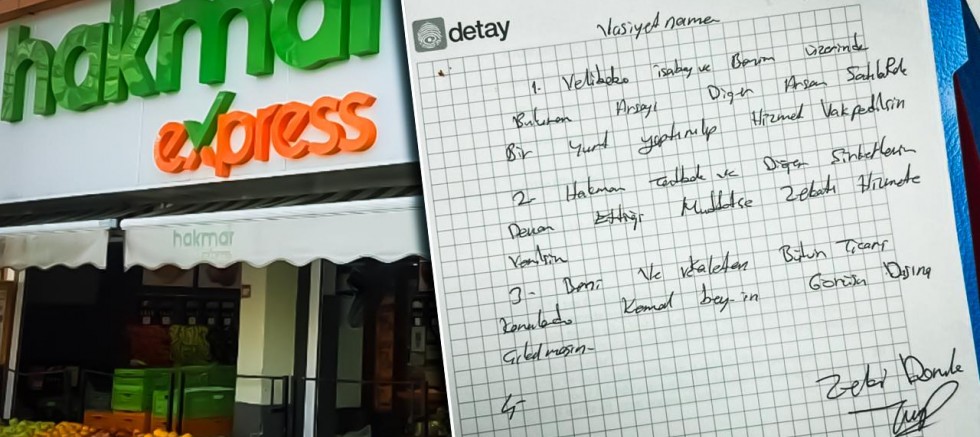 hakmar
express
hakmar
express
detay
Vasiyetname
1. Velibaba isabey ve Benim üzerimde
Bulunan Arsayı Diğer Arsam Satılıp
Bir Yurd yaptırılıp Hizmet Vakfedilsin
2- Hakmar ve Diğer Şirketlerim
Devam Ettiği Müddetçe Zekatı Hizmete
Verilsin
3- Beni Ve Bütün Ticari
Konularda Kemal bey-in Görüşü Dışına
Çıkılmasın-
4-
Zeki